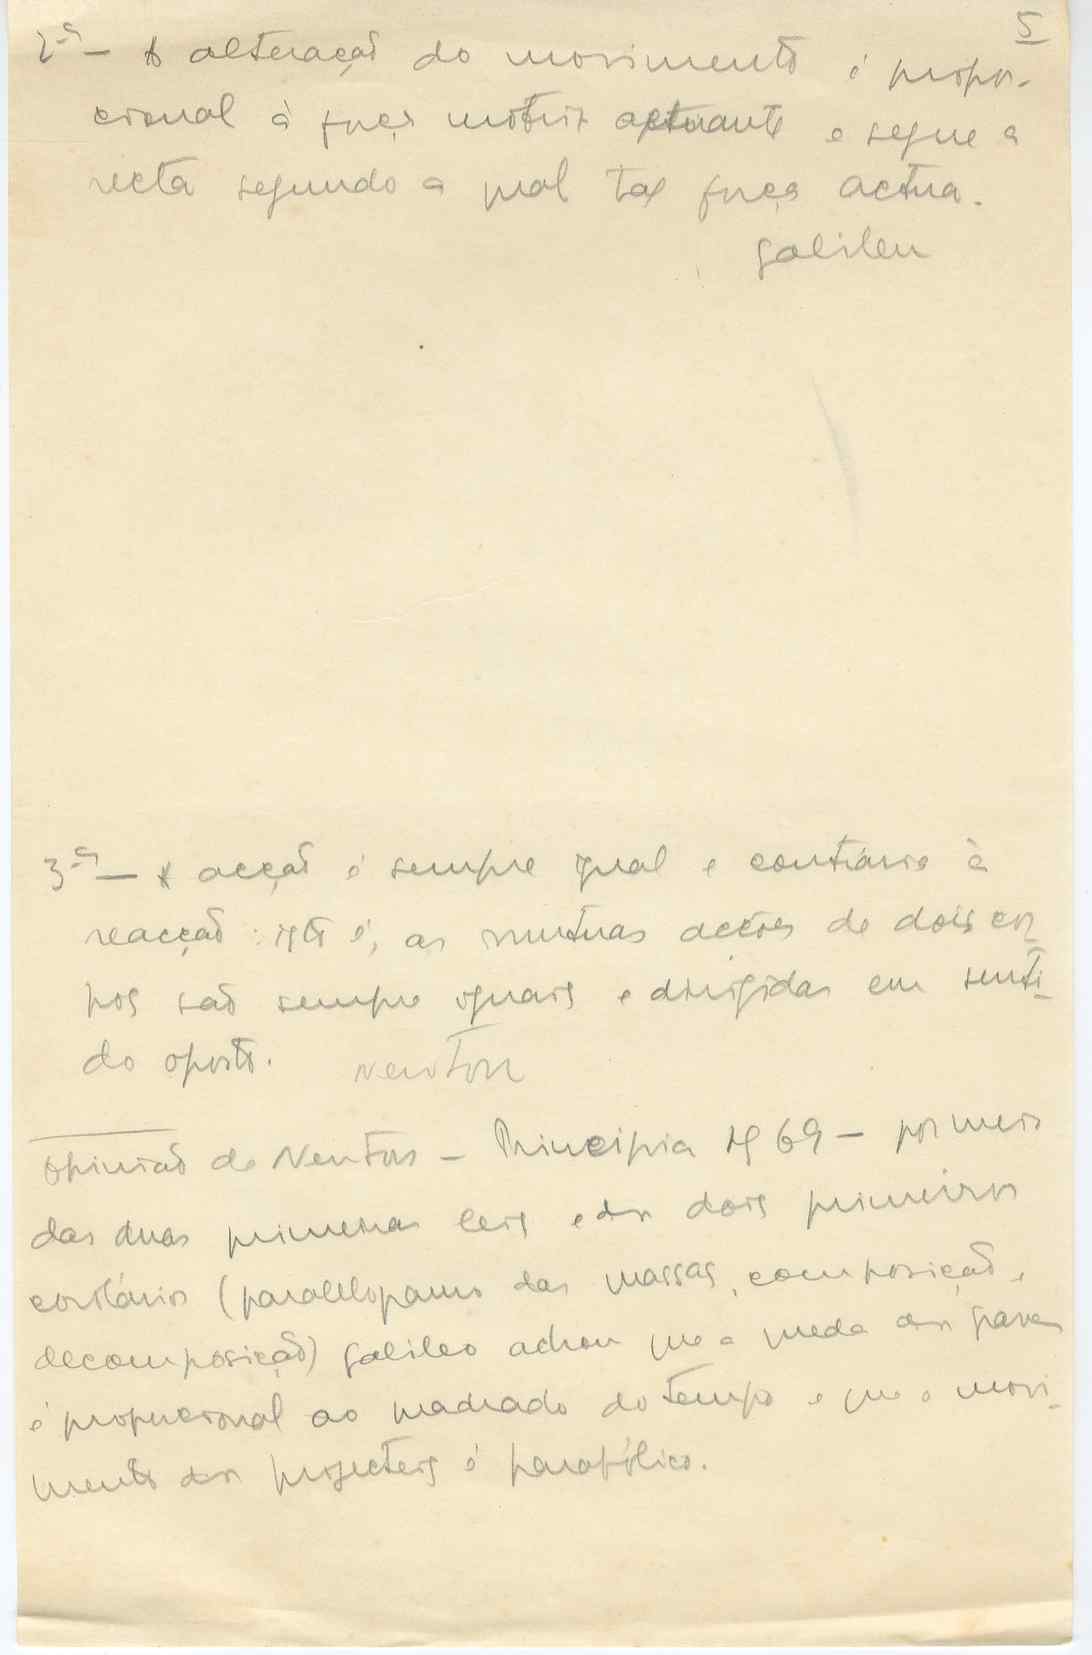 5
2ª — A alteração do movimento é propor-
cional à força motriz actuante e segue a
recta segundo a qual tal força actua.
Galileu
3ª — A acção é sempre igual e contrária à
reacção: isto é, as mutuas acções de dois cor
pos são sempre iguais e dirigidas em senti-
do oposto. Newton
Opinião de Newton — Principia 69 — por meio
das duas primeiras leis e dos dois primeiros
corolários (paralelogramo das massas, composição e
decomposição) Galileo achou que a queda dos graves
é proporcional ao quadrado do tempo e que o movi-
mento dos projecteis é parabólico.